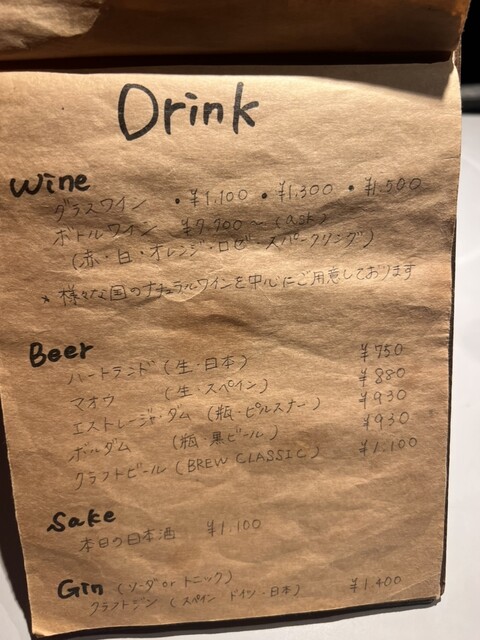 Drink
Wine
グラスワイン ・¥1,100 ・¥1,300 ・¥1,500
ボトルワイン ¥7,700〜(ask)
(赤・白・オレンジ・ロゼ・スパークリング)
* 様々な国のナチュラルワインを中心にご用意しております
Beer
ハートランド(生・日本) ¥750
マオウ (生・スペイン) ¥880
エストレージャ・ダム (瓶・ピルスナー) ¥930
ボルダム (瓶 黒ビール) ¥930
クラフトビール(BREW CLASSIC) ¥1,100
Sake
本日の日本酒 ¥1,100
Gin (ソーダ or トニック)
クラフトジン (スペイン ドイツ・日本) ¥1,400